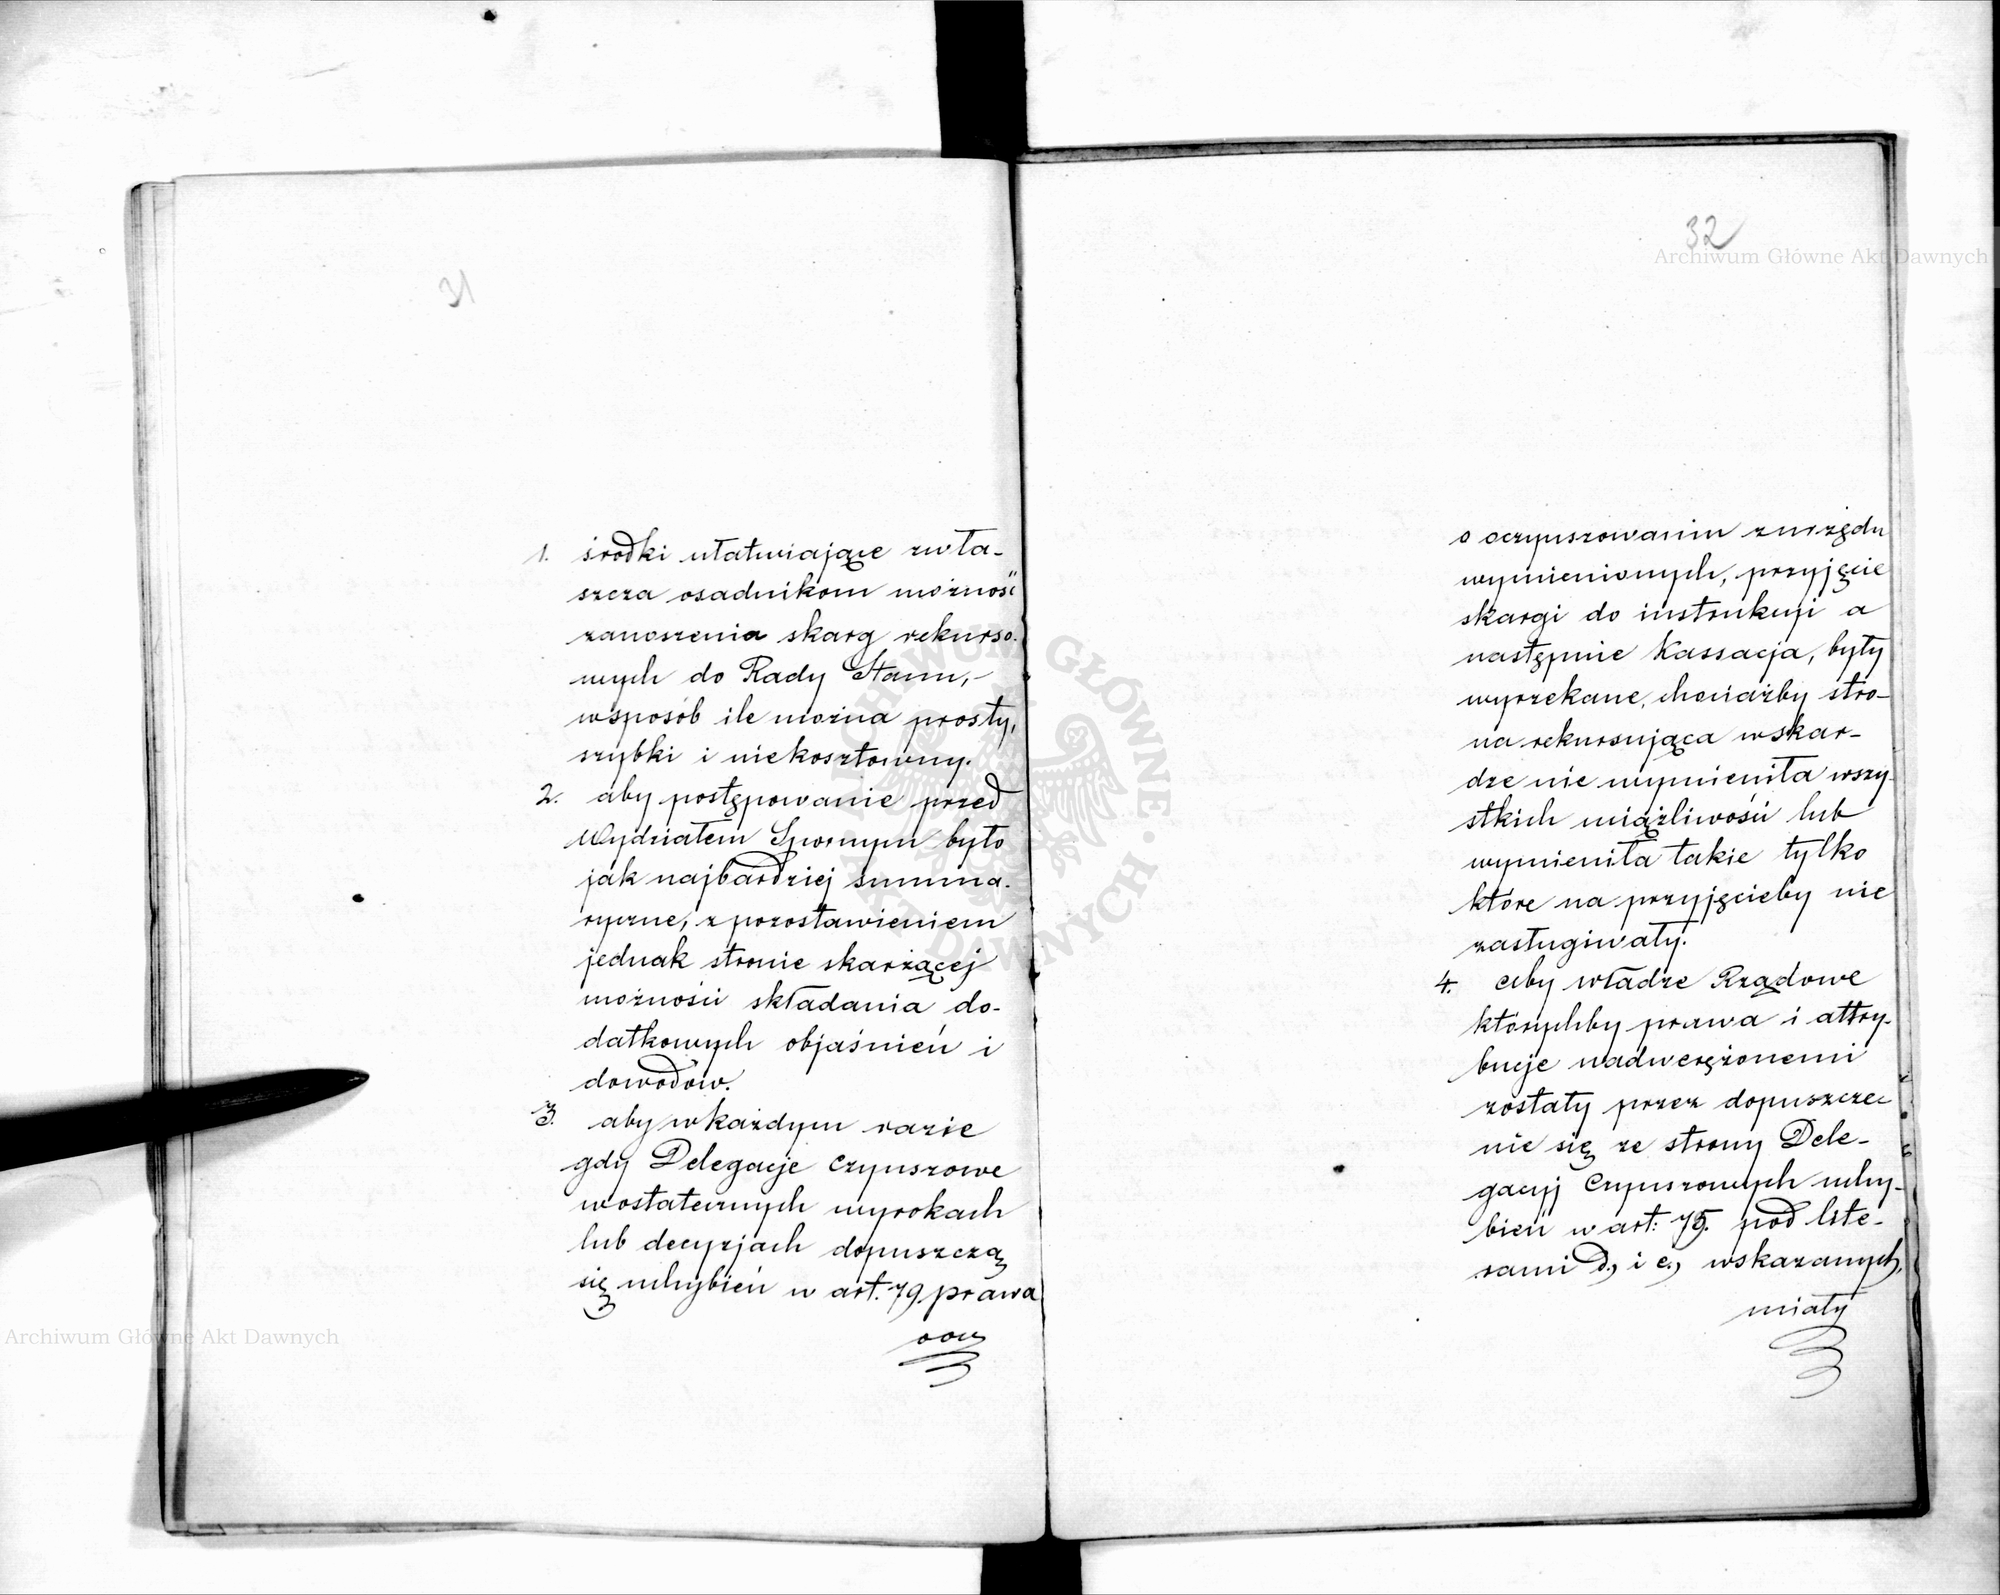 31
1. środki ułatwiające zwła-
szcza osadnikom możność
zanoszenia skarg rekurso-
wych do Rady Stanu,-
wsposób ile można prosty,
szybki i niekosztowny.
2. aby postępowanie przed
Wydziałem Spornym było
jak najbardziej summa-
ryczne, z pozostawieniem
jednak stronie skarżącej
możności składania do-
datkowych objaśnień i
dowodów.
3. aby wkażdym razie
gdy Delegacje Czynszowe
wostatecznych wyrokach
lub decyzjach dopuszczą
się uchybień w art. 79 prawa
32
o oczynszowaniu zurzędu
wymienionych, przyjęcie
skargi do instrukcji a
następnie Kassacja, były
wyrzekane, chociażby stro-
na rekursująca wskar-
dze nie wymieniła wszy-
stkich uciążliwości lub
wymieniła takie tylko
które na przyjęcieby nie
zasługiwały.
4. aby władze Rządowe
którychby prawa i attry-
bucje nadwerężonemi
zostały przez dopuszcze
nie się ze strony Dele-
gacyj Czynszowych uchy-
bień w art: 75. pod lite-
rami d, i e, wskazanych,
miały
Archiwum Główne Akt Dawnych
ARCHIWUM GŁÓWNE AKT DAWNYCH
Archiwum Główne Akt Dawnych